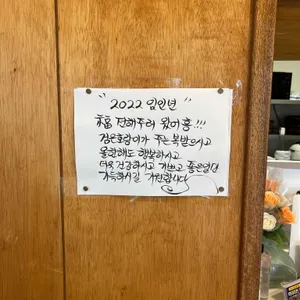 "2022 임인년"
福 전해주러 왔어흥!!!
검은호랑이가 주는 복받으시고
올한해도 행복하시고
더욱 건강하시고 기쁘고 좋은일만
가득하시길 기원합니다